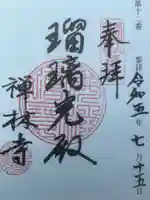 第十二番
奉拝
参拝
令和五年七月十五日
瑠璃光殿
禅林寺